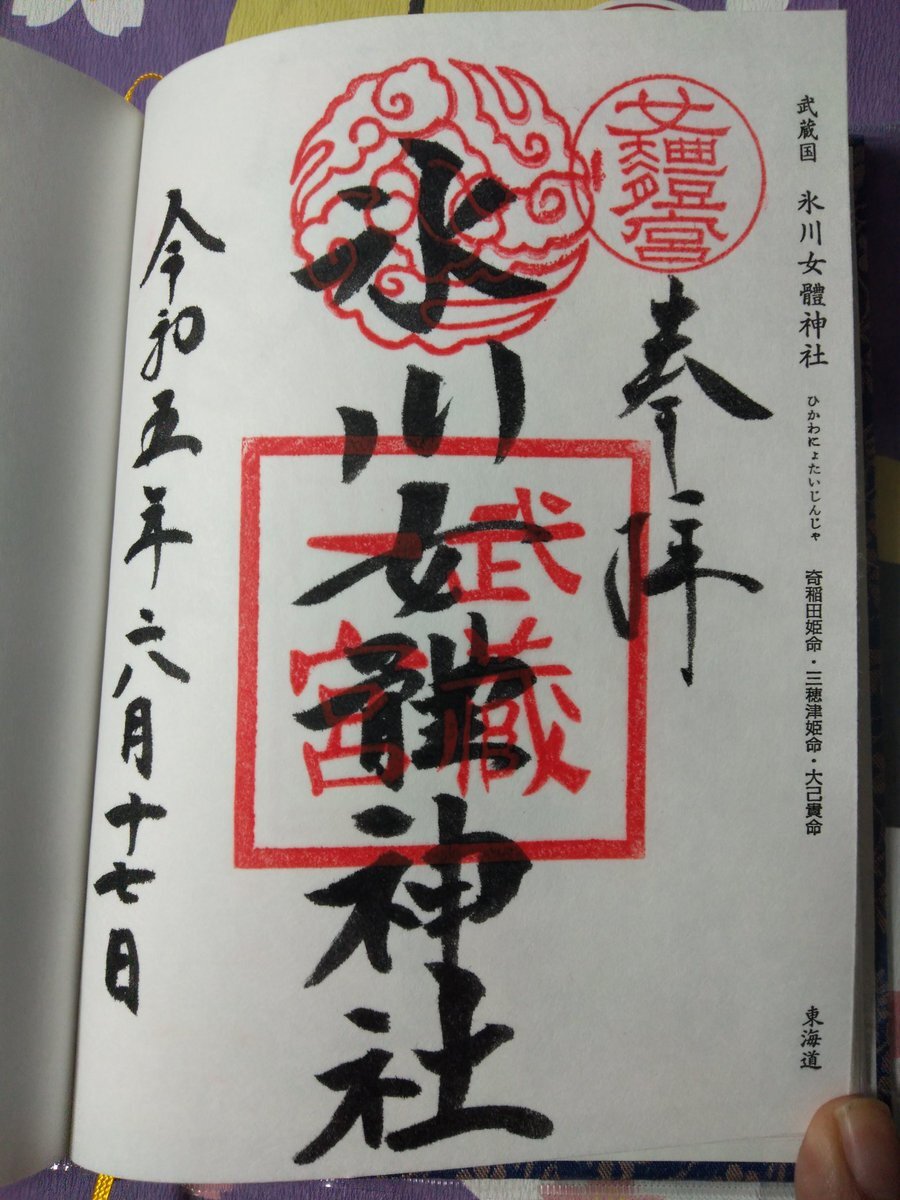 武蔵国 氷川女體神社 ひかわにょたいじんじゃ 奇稲田姫命・三穂津姫命・大己貴命 東海道
女體宮
奉拝
氷川女體神社
武蔵
一宮
令和五年六月十七日